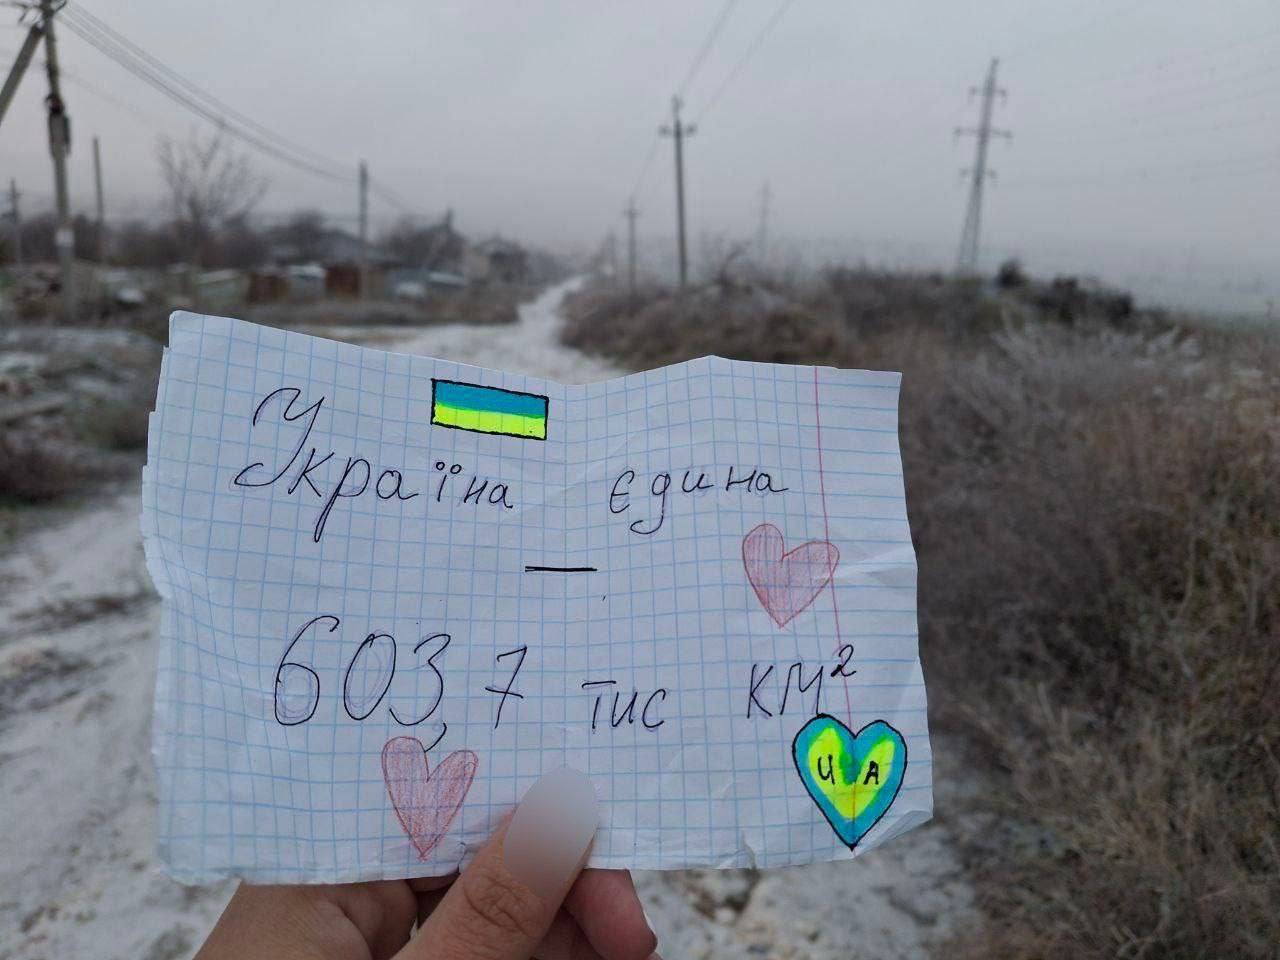 Україна єдина
—
603,7 тис км²
UA